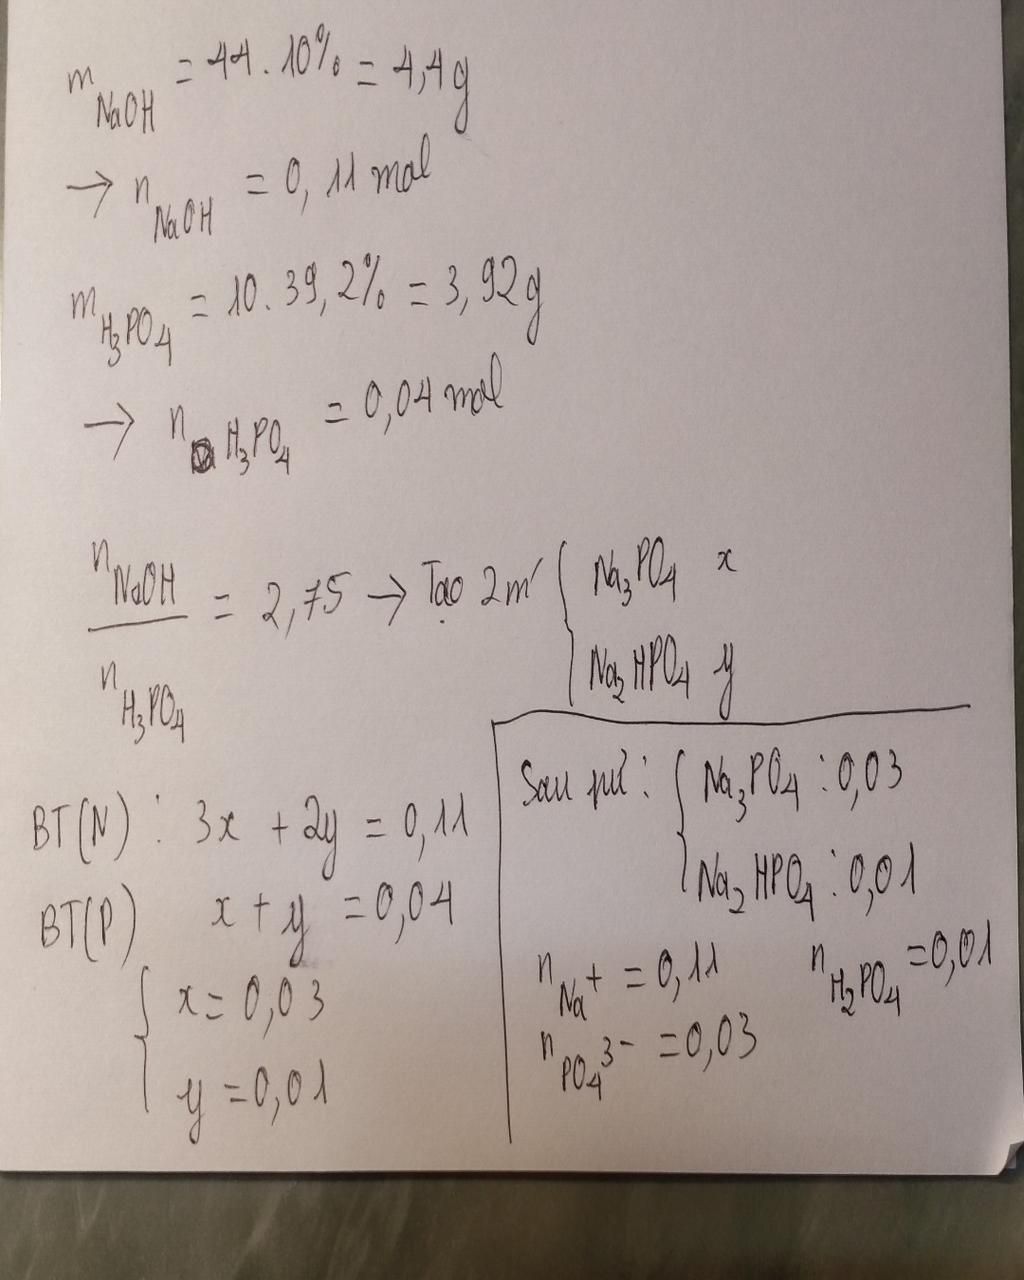 m NaOH = 44 . 10% = 4,4g
→ n NaOH = 0,11 mol
m H₃PO₄ = 10. 39,2% = 3,92g
→ n H₃PO₄ = 0,04 mol
n NaOH / n H₃PO₄ = 2,75 → Tạo 2m' { Na₃PO₄ x
Na₂HPO₄ y
BT(N) : 3x + 2y = 0,11
BT(P) x + y = 0,04
{ x = 0,03
y = 0,01
Sau pư : { Na₃PO₄ : 0,03
Na₂HPO₄ : 0,01
n Na+ = 0,11 n H₂PO₄ = 0,01
n PO₄³⁻ = 0,03